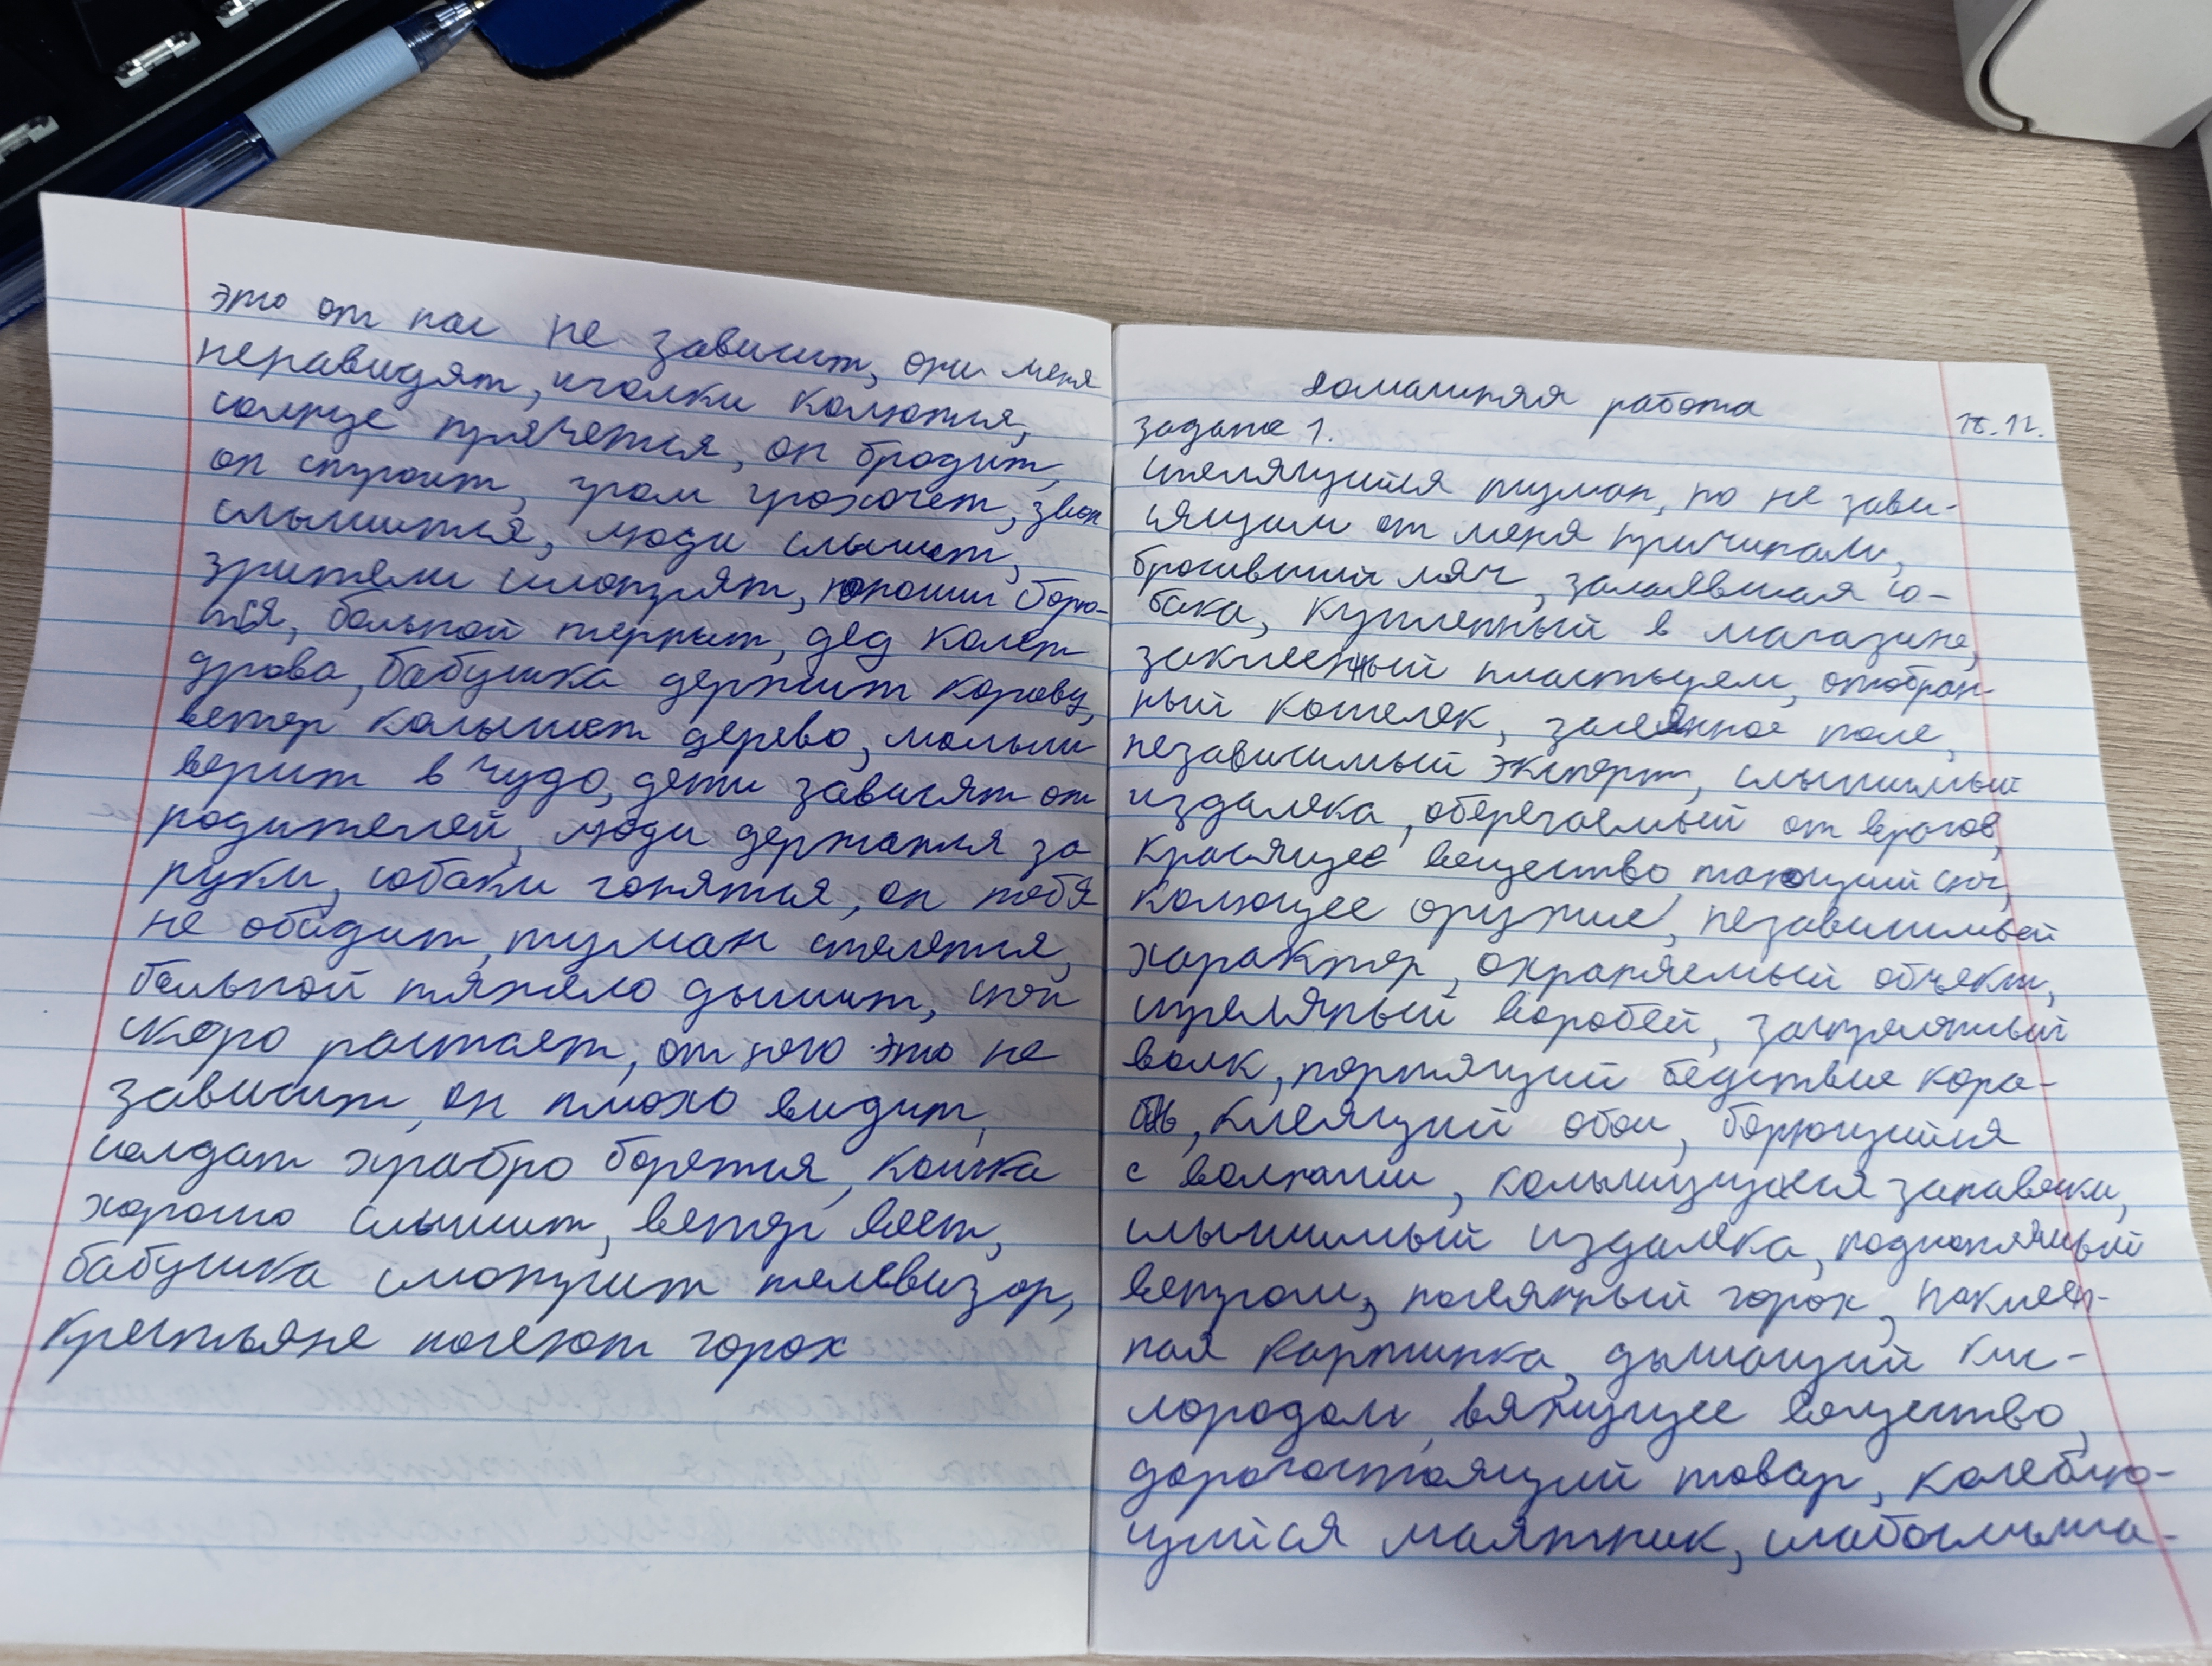 это от нас не зависит, они меня
ненавидят, иголки колются,
солнце прячется, он бродит,
он строит, гром грохочет, звон
слышится, люди слышат,
зрители смотрят, юноши борю-
тся, больной терпит, дед колет
дрова, бабушка держит корову,
ветер колышет дерево, малыш
верит в чудо, дети зависят от
родителей, люди держатся за
руки, собаки гонятся, он тебя
не обидит, туман стелется,
больной тяжело дышит, снег
скоро растает, от него это не
зависит, он плохо видит,
солдат храбро борется, кошка
хорошо слышит, ветер веет,
бабушка смотрит телевизор,
крестьяне посеют горох
Домашняя работа
задание 1.
стелящийся туман, по не зави-
сящим от меня причинам,
бросивший мяч, залаявшая со-
бака, купленный в магазине,
заклеенный пластырем, отобран-
ный кошелек, засеянное поле,
независимый эксперт, слышимый
издалека, оберегаемый от врагов,
красящее вещество, тающий снег,
колющее оружие, независимый
характер, охраняемый объект,
стреляный воробей, застреленный
волк, терпящий бедствие кора-
бль, клеящий обои, борющийся
с волнами, колышущиеся занавески,
слышимый издалека, подгоняемый
ветром, посеянный горох, наклеен-
ная картинка, дышащий кис-
лородом, вяжущее вещество,
дорогостоящий товар, колеблю-
щийся маятник, слабослыша-